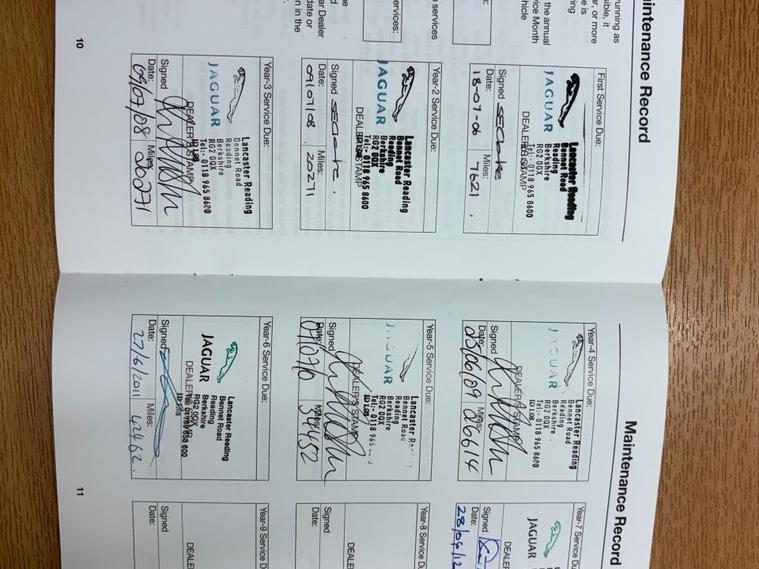 Maintenance Record
running as
or more
ible, it
e is
ring
the annual
vice Month
hicle
services
ervices:
ar Dealer
date or
n in the
First Service Due:
JAGUAR
Lancaster Reading
Bennet Road
Reading
Berkshire
RG2 0QX
Tel:- 0118 965 8600
DEALER'S STAMP
Signed
Date: Miles:
18-07-06 7621
Year-2 Service Due:
JAGUAR
Lancaster Reading
Bennet Road
Reading
Berkshire
RG2 0QX
Tel:- 0118 965 8600
DEALER'S STAMP
Signed
Date: Miles:
09/07/08 20271
Year-3 Service Due:
JAGUAR
Lancaster Reading
Bennet Road
Reading
Berkshire
RG2 0QX
Tel:- 0118 965 8600
DEALER'S STAMP
Signed
Date: Miles:
09/07/08 20271
10
Maintenance Record
Year-4 Service Due:
JAGUAR
Lancaster Reading
Bennet Road
Reading
Berkshire
RG2 0QX
Tel:- 0118 965 8600
DEALER'S STAMP
Signed
Date: Miles:
26614
Year-5 Service Due:
JAGUAR
Lancaster
Bennet Road
Reading
Berkshire
RG2 0QX
Tel:- 0118 965
DEALER'S STAMP
Signed
Date: Miles:
34452
Year-6 Service Due:
JAGUAR
Lancaster Reading
Bennet Road
Reading
Berkshire
RG2 0QX
DEALER'S STAMP
Signed
Date: Miles:
27/6/2011 42462
Year-7
JAGUAR
DEALE
Signed
Date:
28/09/12
Year-8 Service D
DEALE
Signed
Date:
Year-9 Service D
DEALE
Signed
Date:
11